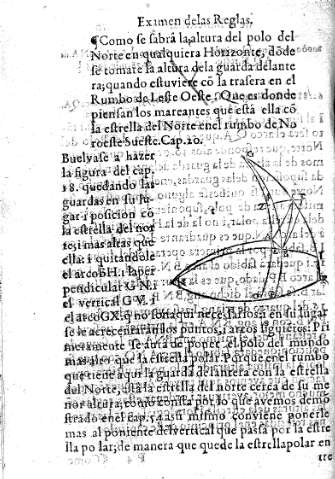 Examen de las Reglas,
¶Como se sabrà la altura del polo del
Norte en qualquiera Horizonte, dõde
se tomare la altura de la guarda delante
ra; quando estuviere cõ la trasera en el
Rumbo de Leste Oeste, Que es donde
piensan los mareantes que està ella cõ
la estrella del Norte en el rumbo de No
roeste Sueste. Cap. 20.
Buelvase a hazer
la figura del cap.
18. quedando las
guardas en su lu-
gar i posicion cõ
la estrella del nor
te; i mas altas que
ella: i quitandole
el arco BH. i la per
pendicular G N. i
el vertical G V. i
el arco GX. q̃ no son aqui necessarios: en su lugar
se le acrecentaràn los puntos, i arcos siguiẽtes: Pri
meramente se avrà de poner el polo del mundo
mas alto que la estrella polar: Porque en el rumbo
que tiene aqui la guarda delantera con la estrella
del Norte, està la estrella del Norte cerca de su me
nor altura; como consta por lo que avemos demo
strado en el cap. 5. a assi mismo conviene ponerlo
mas al poniente del vertical que passa por la estre
lla polar; de manera que quede la estrella polar en
tre